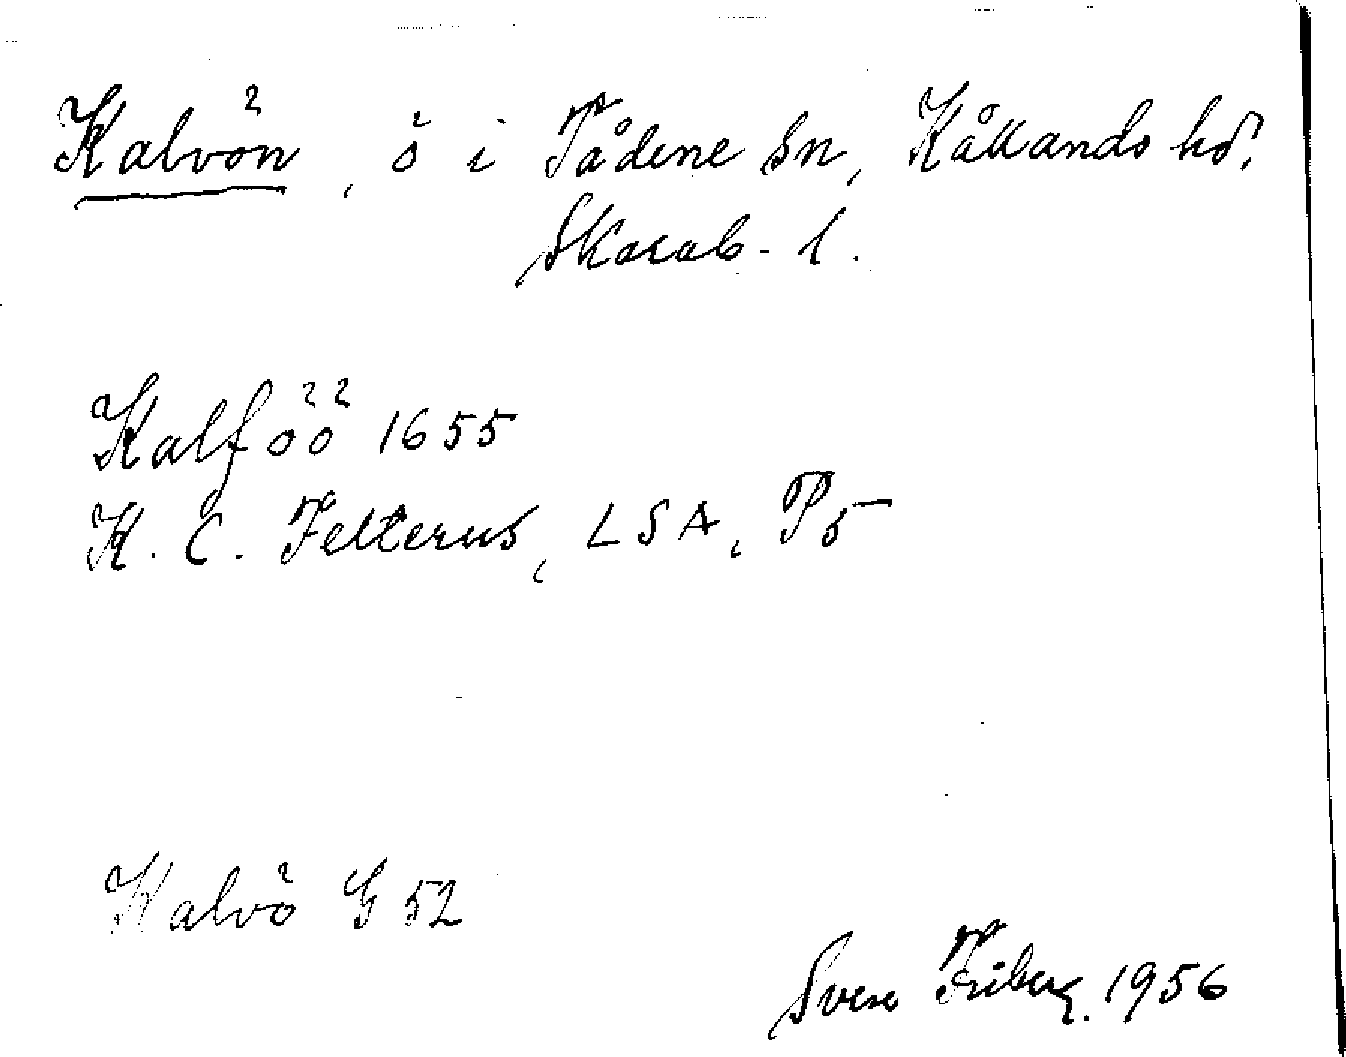 Kalvön, ö i Tådene sn, Kållands hd?
Skarab. l.
Kalföö 1655
K. C. Felterus, LSA, P5
Kalvö G 52
Sven Friberg. 1956